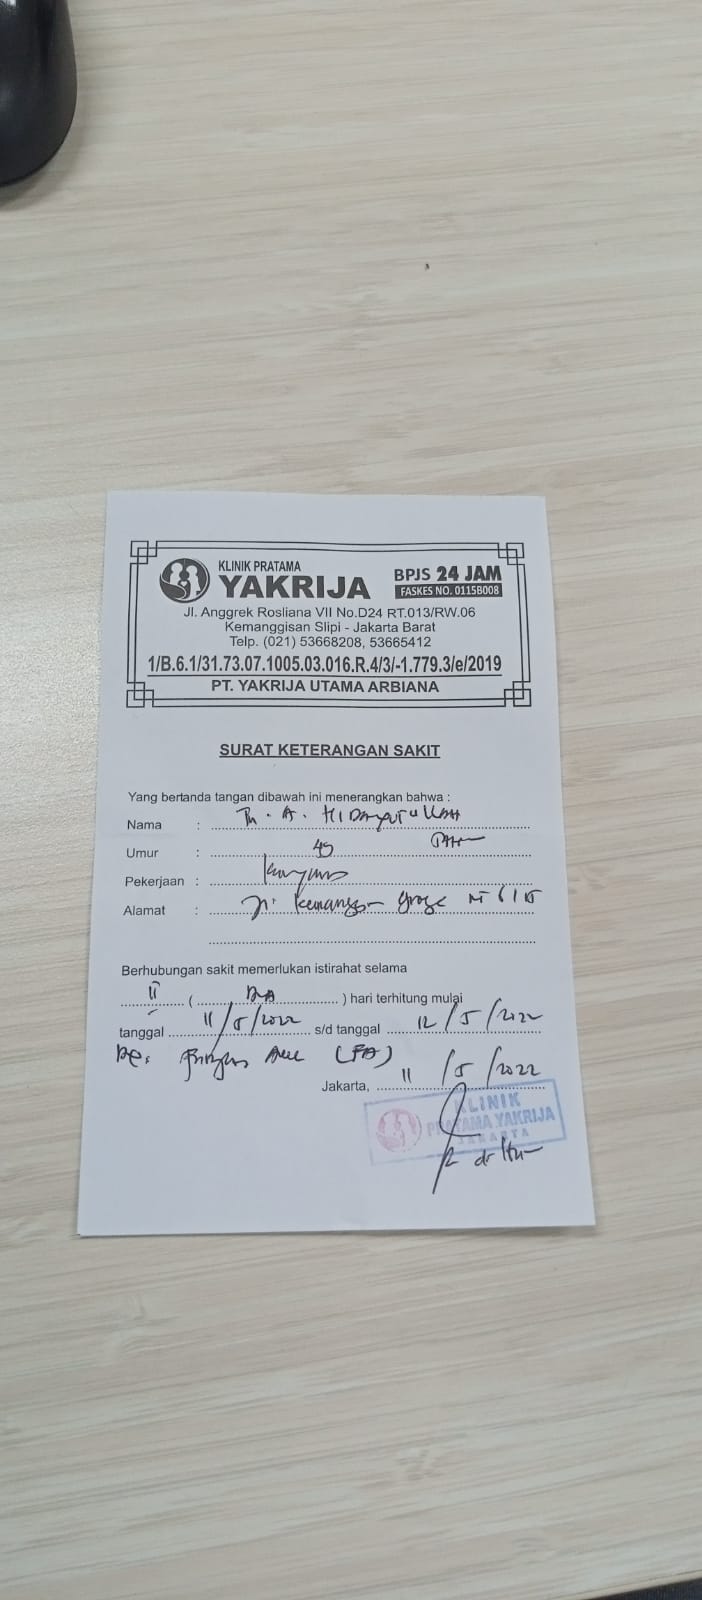 KLINIK PRATAMA
YAKRIJA
BPJS 24 JAM
FASKES NO. 0115B008
Jl. Anggrek Rosliana VII No.D24 RT.013/RW.06
Kemanggisan Slipi - Jakarta Barat
Telp. (021) 53668208, 53665412
1/B.6.1/31.73.07.1005.03.016.R.4/3/-1.779.3/e/2019
PT. YAKRIJA UTAMA ARBIANA
SURAT KETERANGAN SAKIT
Yang bertanda tangan dibawah ini menerangkan bahwa :
Nama : Tn. A. HIDAYATULLAH
Umur :
Pekerjaan :
Alamat : Jl. Kemanggisan
Berhubungan sakit memerlukan istirahat selama
II ( DUA ) hari terhitung mulai
tanggal 11/5/2022 s/d tanggal 12/5/2022
Jakarta, 11/5/2022
KLINIK
PRATAMA YAKRIJA
JAKARTA
dr